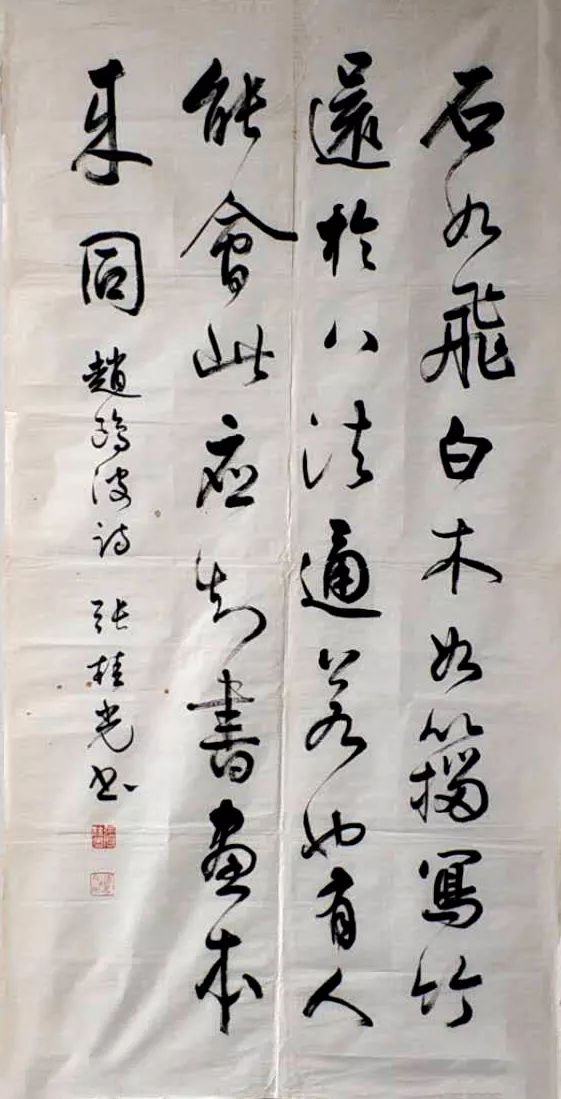 石如飛白木如籀寫竹
還於八法通若也有人
能會此應知書畫本
來同 趙鷗波詩 張桂光書